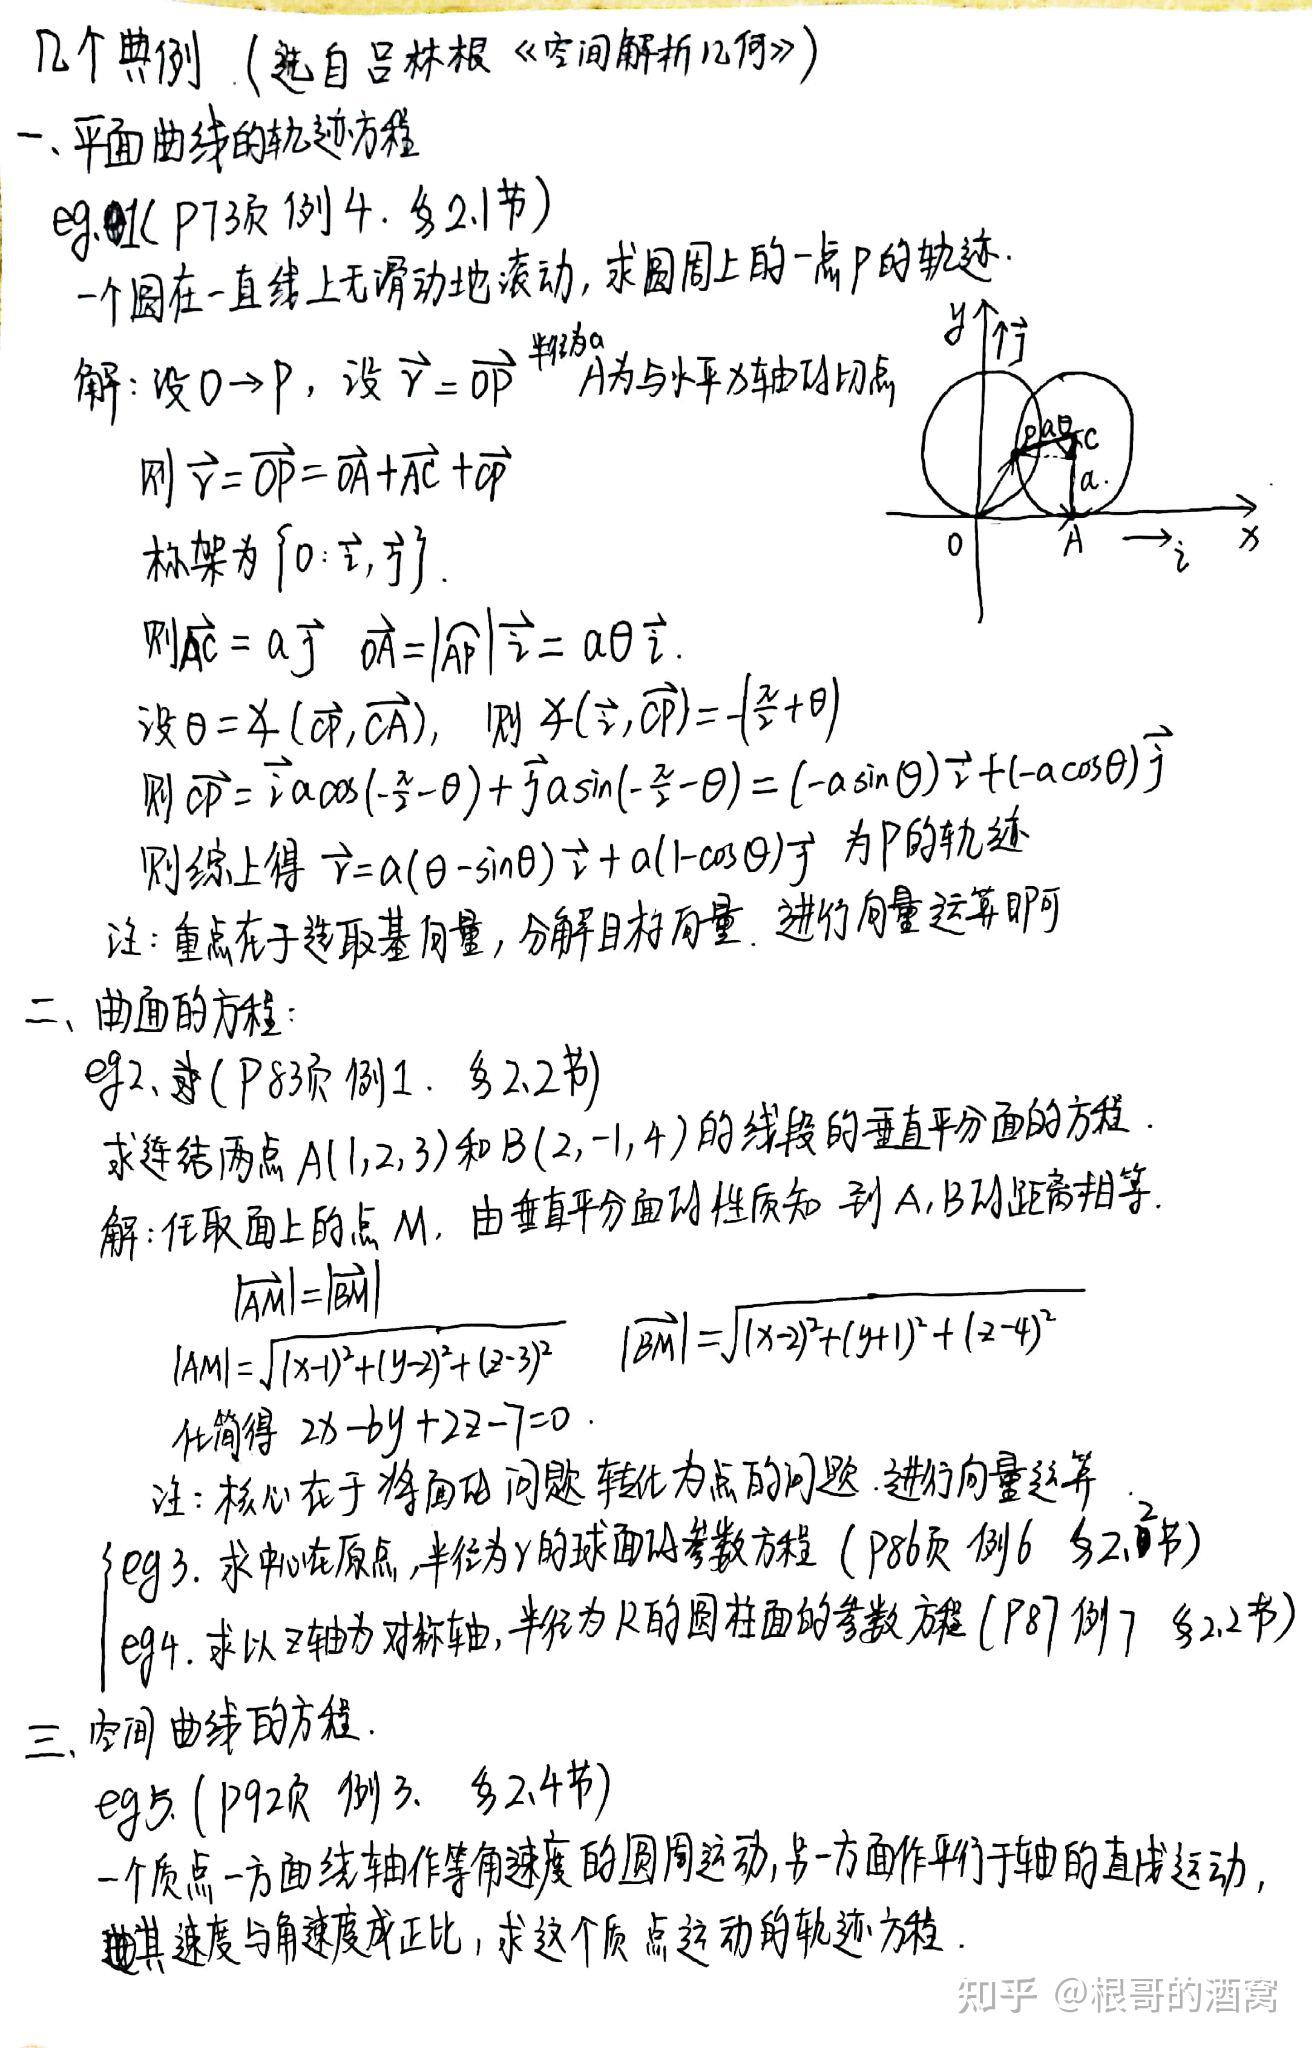 几个典例 (选自吕林根《空间解析几何》)
一、平面曲线的轨迹方程
eg.1(P73页 例4. §2.1节)
一个圆在一直线上无滑动地滚动, 求圆周上的一点P的轨迹.
解: 设O→P, 设 $\vec{r}=\overrightarrow{OP}$ 半径为a A为与水平x轴的切点
y ↑$\vec{j}$
P aθ C
a.
O A → i x
则 $\vec{r}=\overrightarrow{OP}=\overrightarrow{OA}+\overrightarrow{AC}+\overrightarrow{CP}$
标架为 {O: $\vec{i},\vec{j}$}.
则$\overrightarrow{AC}=a\vec{j}$ $\overrightarrow{OA}=|\overset{\frown}{AP}|\vec{i}=a\theta\vec{i}$.
设θ=∡($\overrightarrow{CP},\overrightarrow{CA}$), 则 ∡($\vec{i},\overrightarrow{CP}$)=-($\frac{\pi}{2}$+θ)
则 $\overrightarrow{CP}=\vec{i}a\cos(-\frac{\pi}{2}-\theta)+\vec{j}a\sin(-\frac{\pi}{2}-\theta)=(-a\sin(\theta))\vec{i}+(-a\cos\theta)\vec{j}$
则综上得 $\vec{r}=a(\theta-\sin\theta)\vec{i}+a(1-\cos\theta)\vec{j}$ 为P的轨迹
注: 重点在于选取基向量, 分解目标向量. 进行向量运算即可
二、曲面的方程:
eg2、(P83页 例1. §2.2节)
求连结两点A(1,2,3)和B(2,-1,4)的线段的垂直平分面的方程.
解: 任取面上的点M, 由垂直平分面的性质知 到A,B的距离相等.
$|\overrightarrow{AM}|=|\overrightarrow{BM}|$
$|AM|=\sqrt{(x-1)^2+(y-2)^2+(z-3)^2}$ $|\overrightarrow{BM}|=\sqrt{(x-2)^2+(y+1)^2+(z-4)^2}$
化简得 2x-6y+2z-7=0.
注: 核心在于将面的问题转化为点的问题. 进行向量运算.
eg3. 求中心在原点, 半径为r的球面的参数方程 (P86页 例6 §2.2节)
eg4. 求以z轴为对称轴, 半径为R的圆柱面的参数方程 (P87 例7 §2.2节)
三、空间曲线的方程.
eg5. (P92页 例3、 §2.4节)
一个质点一方面绕轴作等角速度的圆周运动, 另一方面作平行于轴的直线运动,
其速度与角速度成正比, 求这个质点运动的轨迹方程.
知乎 @根哥的酒窝